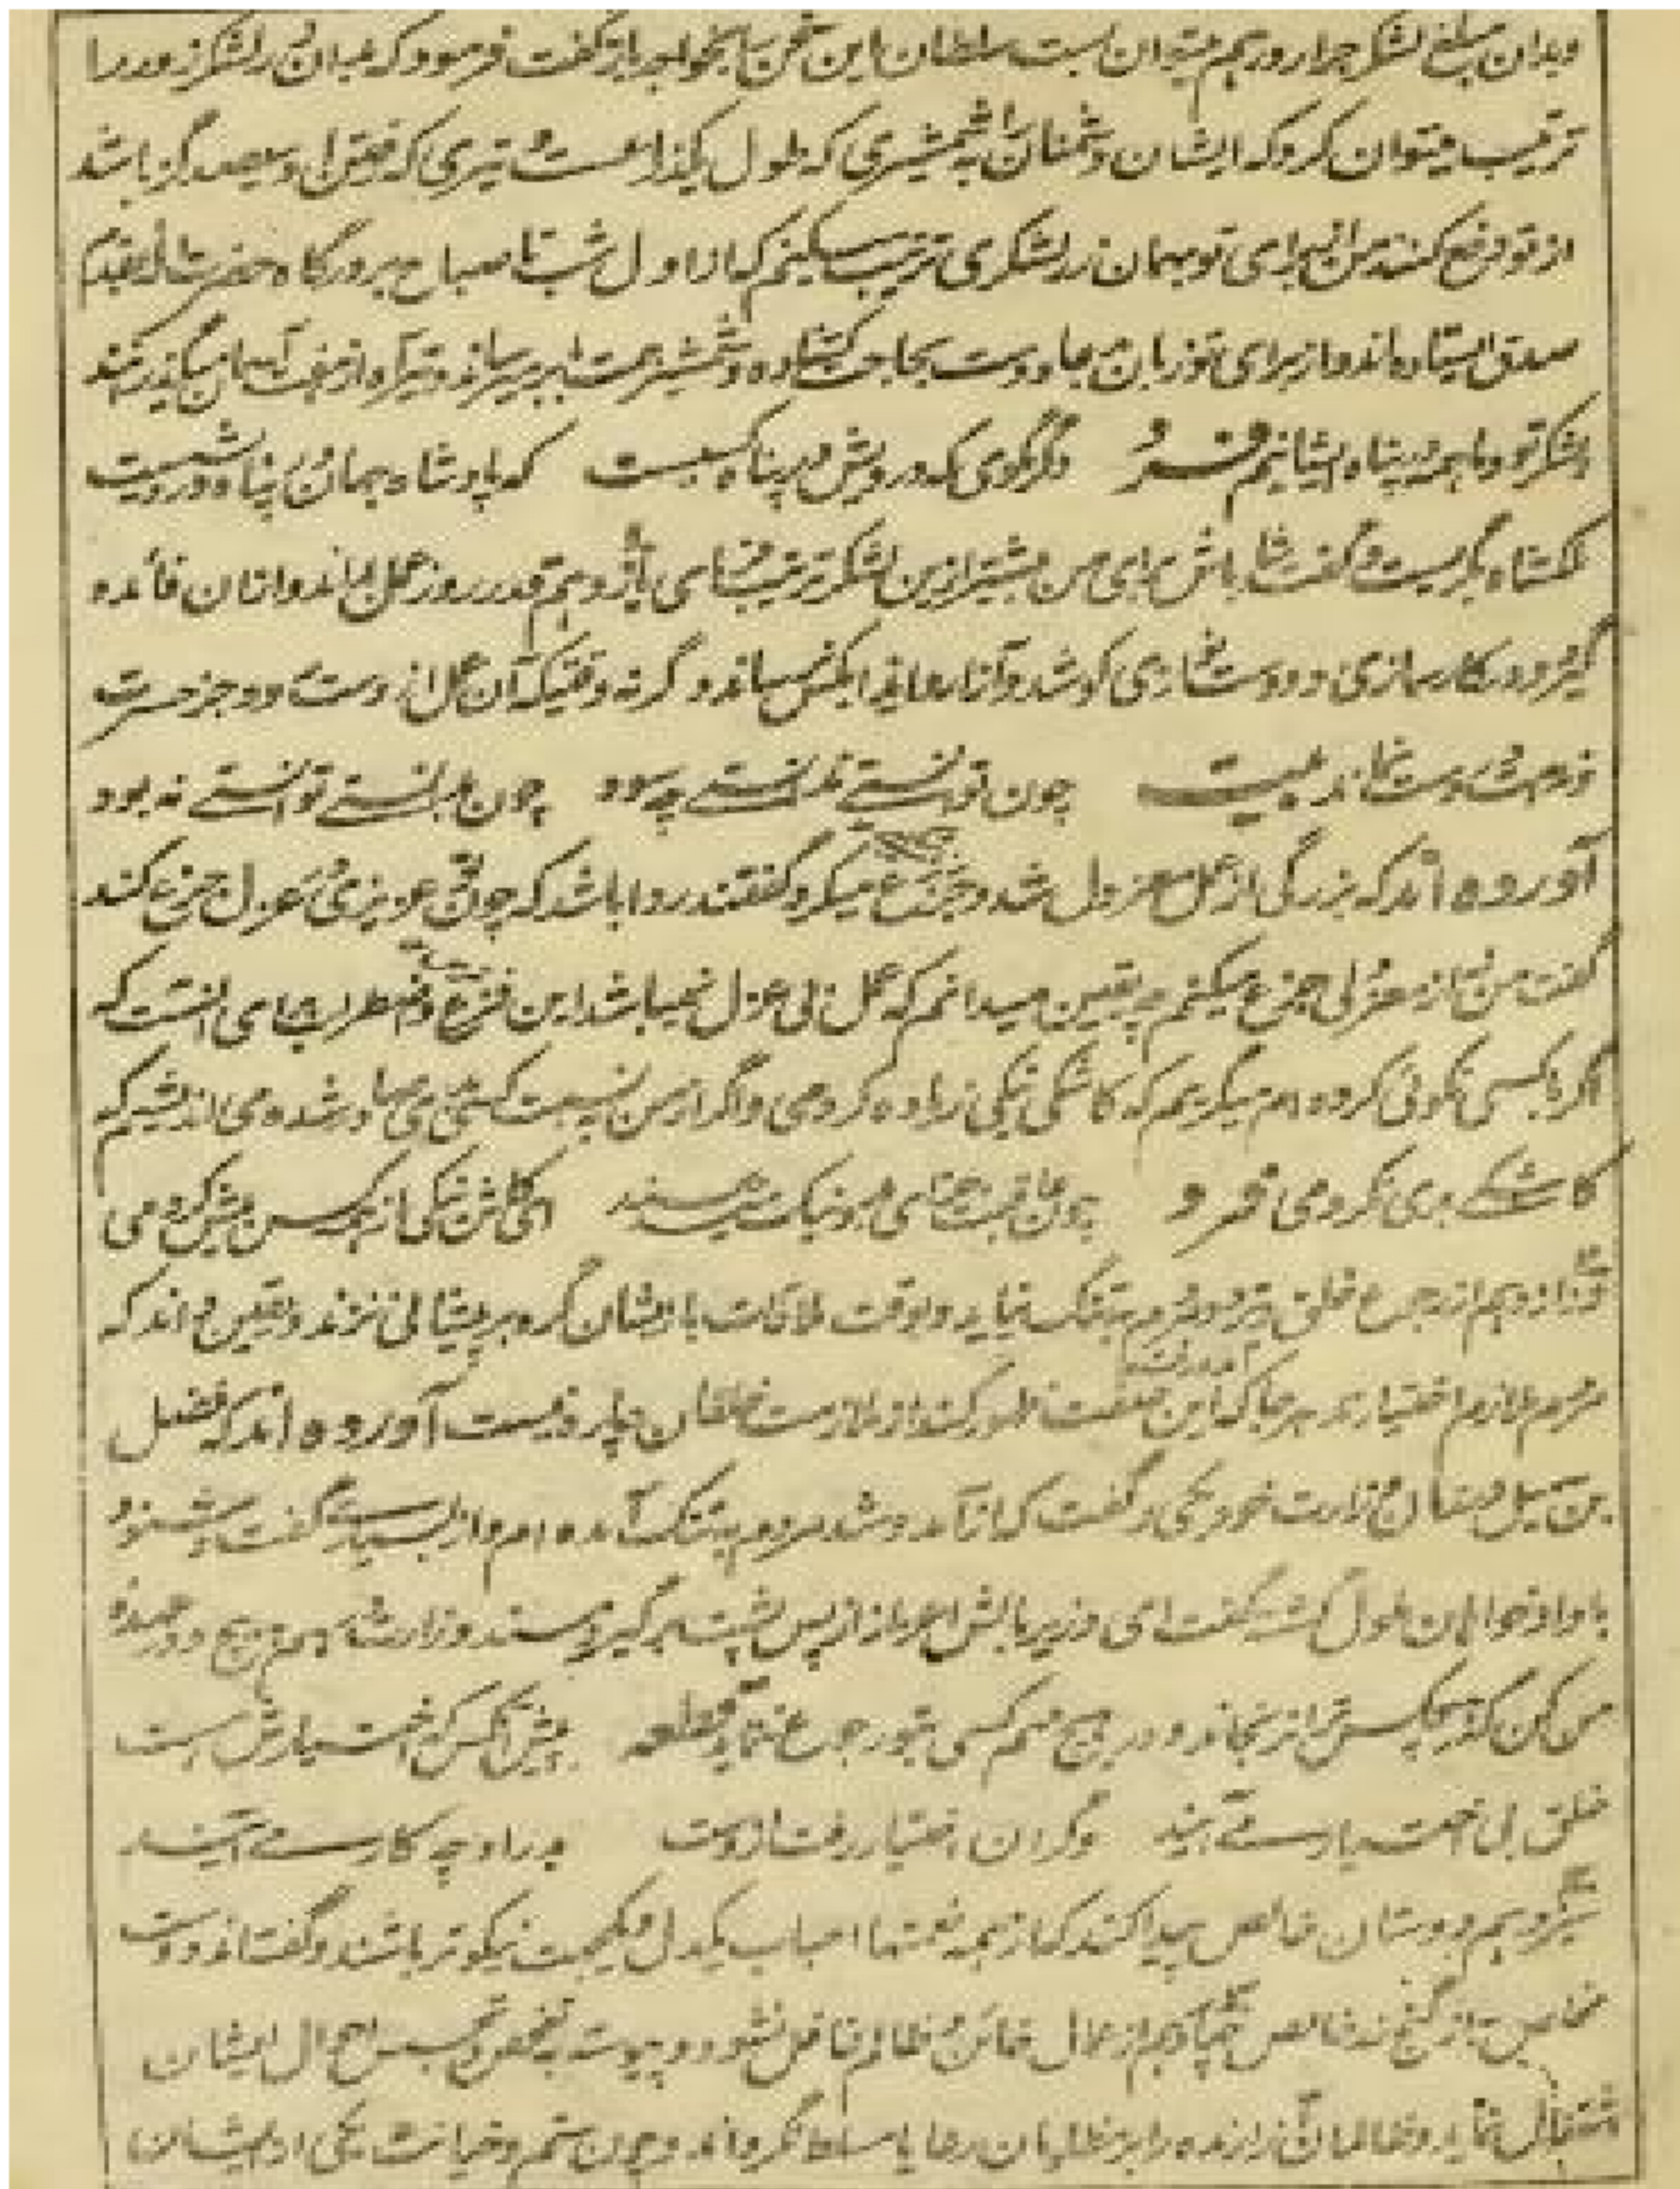 وبدان مبلغ لشکر جرار و ... میتوان بست سلطان این سخن با خواجه باز گفت فرمود که بدان زر لشکر زودرا
ترتیب میتوان کرد که ایشان دشمنان را به شمشیری که طول یکگز است و تیری که ... سیصد گز باشد
از تو دفع کنند من برای تو بهمان زر لشکری ترتیب میکنم که از اول شب تا صباح بدرگاه حضرت اله بقدم
صدق ایستاده اند و از برای تو زبان بدعا و دست بحاجت گشاده و شمشیر همت ... میرسانند و تیر آه از هفت آسمان میگذرانند
لشکر تو و ما همه در پناه ایشانیم فرد دگر مگوی که درویش در پناه کسیست که پادشاه جهان در پناه درویشست
ملکشاه بگریست و گفت شاباش برای من بیشتر ازین لشکر ترتیب نمای یازدهم قدر روز عمل بداند و از آن فائده
گیرد و در کارسازی و دوست نوازی کوشد و آثار ... وگرنه وقتیکه آن عمل از دست رود جز حسرت
و ندامت بدست نماند بیت چون توانستی ندانستی چه سود چون بدانستی توانستی نه بود
آورده اند که بزرگی از عمل معزول شد و جزع میکرد گفتند روا باشد که چون تو عزیزی از عزل جزع کند
گفت من نه از معزولی جزع میکنم چه یقین میدانم که عمل بی عزل نمیباشد این فزع و اضطراب بجای آنست که
اگر با کسی نکوئی کرده ام میگریم که کاشکی نیکی زیاده کردمی و اگر از من به نسبت کسی بدی صادر شده می اندیشم که
کاشکے بدی نکردمی فرد چون عاقبت جزای بد و نیک میرسد ای کاش نیکی از همه کس بیش کردمی
دوازدهم از رجوع خلق و تردد مردم بتنگ نیاید و بوقت ملاقات با ایشان گره بر پیشانی نزند و یقین داند که
مردم ملازم اختیارند هر جا که این صفت ظهور کند از ملازمت خلقان چاره نیست آورده اند که فضل
بن سهل در زمان وزارت خود بیکی گفت که از آمد و شد مردم بتنگ آمده ام و از بسیاری گفت و شنود
با دادخواهان ملول گشته گفت ای وزیر بالش اعزاز از پس پشت برگیر و مسند وزارت بهم پیچ و در عهده
من کن که هیچکس ترا نرنجاند و در هیچ مهم کسی بتو رجوع ننماید قطعه پیش آنکس که اختیارش هست
خلق بی اختیار می آیند وگر آن اختیار رفت از دست بدر او چه کار می آیند
سیزدهم دوستان خالص پیدا کند که از همه نعمتها احباب یکدل و یکجهت نیکوتر باشند و گفته اند دوست
خالص به از گنج زر خالص چهاردهم از عمال خائن و ظالم غافل نشود و پیوسته به تفحص و تجسس احوال ایشان
اشتغال نماید و ظالمان ... را بر مظلومان رعایا مسلط نگرداند و چون ستم و خیانت یکی از ایشان